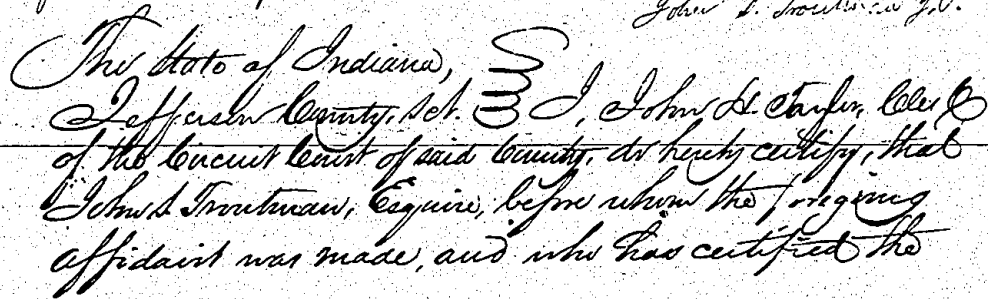 John S. Troutman J.P.
The State of Indiana,
Jefferson County, sct. I, John H. Taylor, Clerk
of the Circuit Court of said County, do hereby certify, that
John S Troutman, Esquire, before whom the foregoing
affidavit was made, and who has certified the